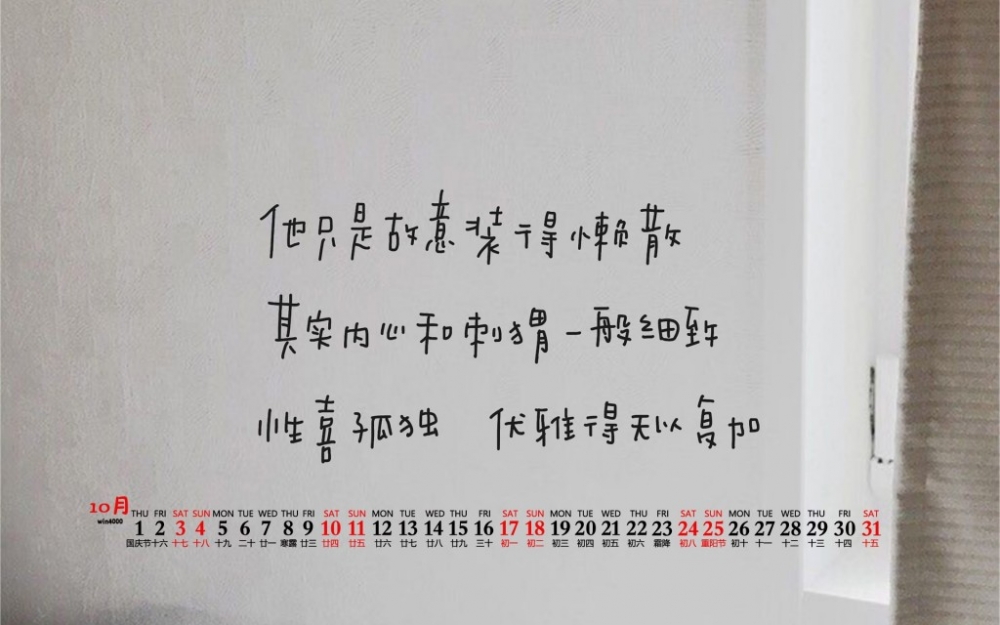 他只是故意装得懒散
其实内心和刺猬一般细致
性喜孤独 优雅得无以复加
10月
win4000
THU FRI SAT SUN MON TUE WED THU FRI SAT SUN MON TUE WED THU FRI SAT SUN MON TUE WED THU FRI SAT SUN MON TUE WED THU FRI SAT
1 2 3 4 5 6 7 8 9 10 11 12 13 14 15 16 17 18 19 20 21 22 23 24 25 26 27 28 29 30 31
国庆节 十六 十七 十八 十九 二十 廿一 寒露 廿三 廿四 廿五 廿六 廿七 廿八 廿九 三十 初一 初二 初三 初四 初五 初六 霜降 初八 重阳节 初十 十一 十二 十三 十四 十五